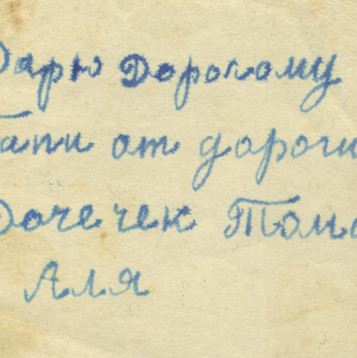 Дарю Дорогому
Папи от дороги
Дочечек Тома
Аля